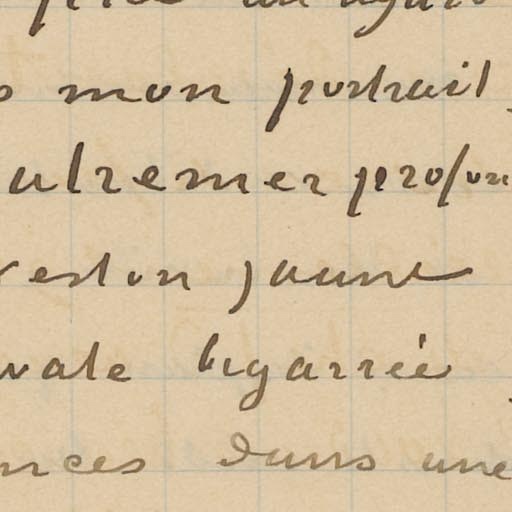 mon portrait
utremer profon
veston jaune
vate bigarrée
nces dans une